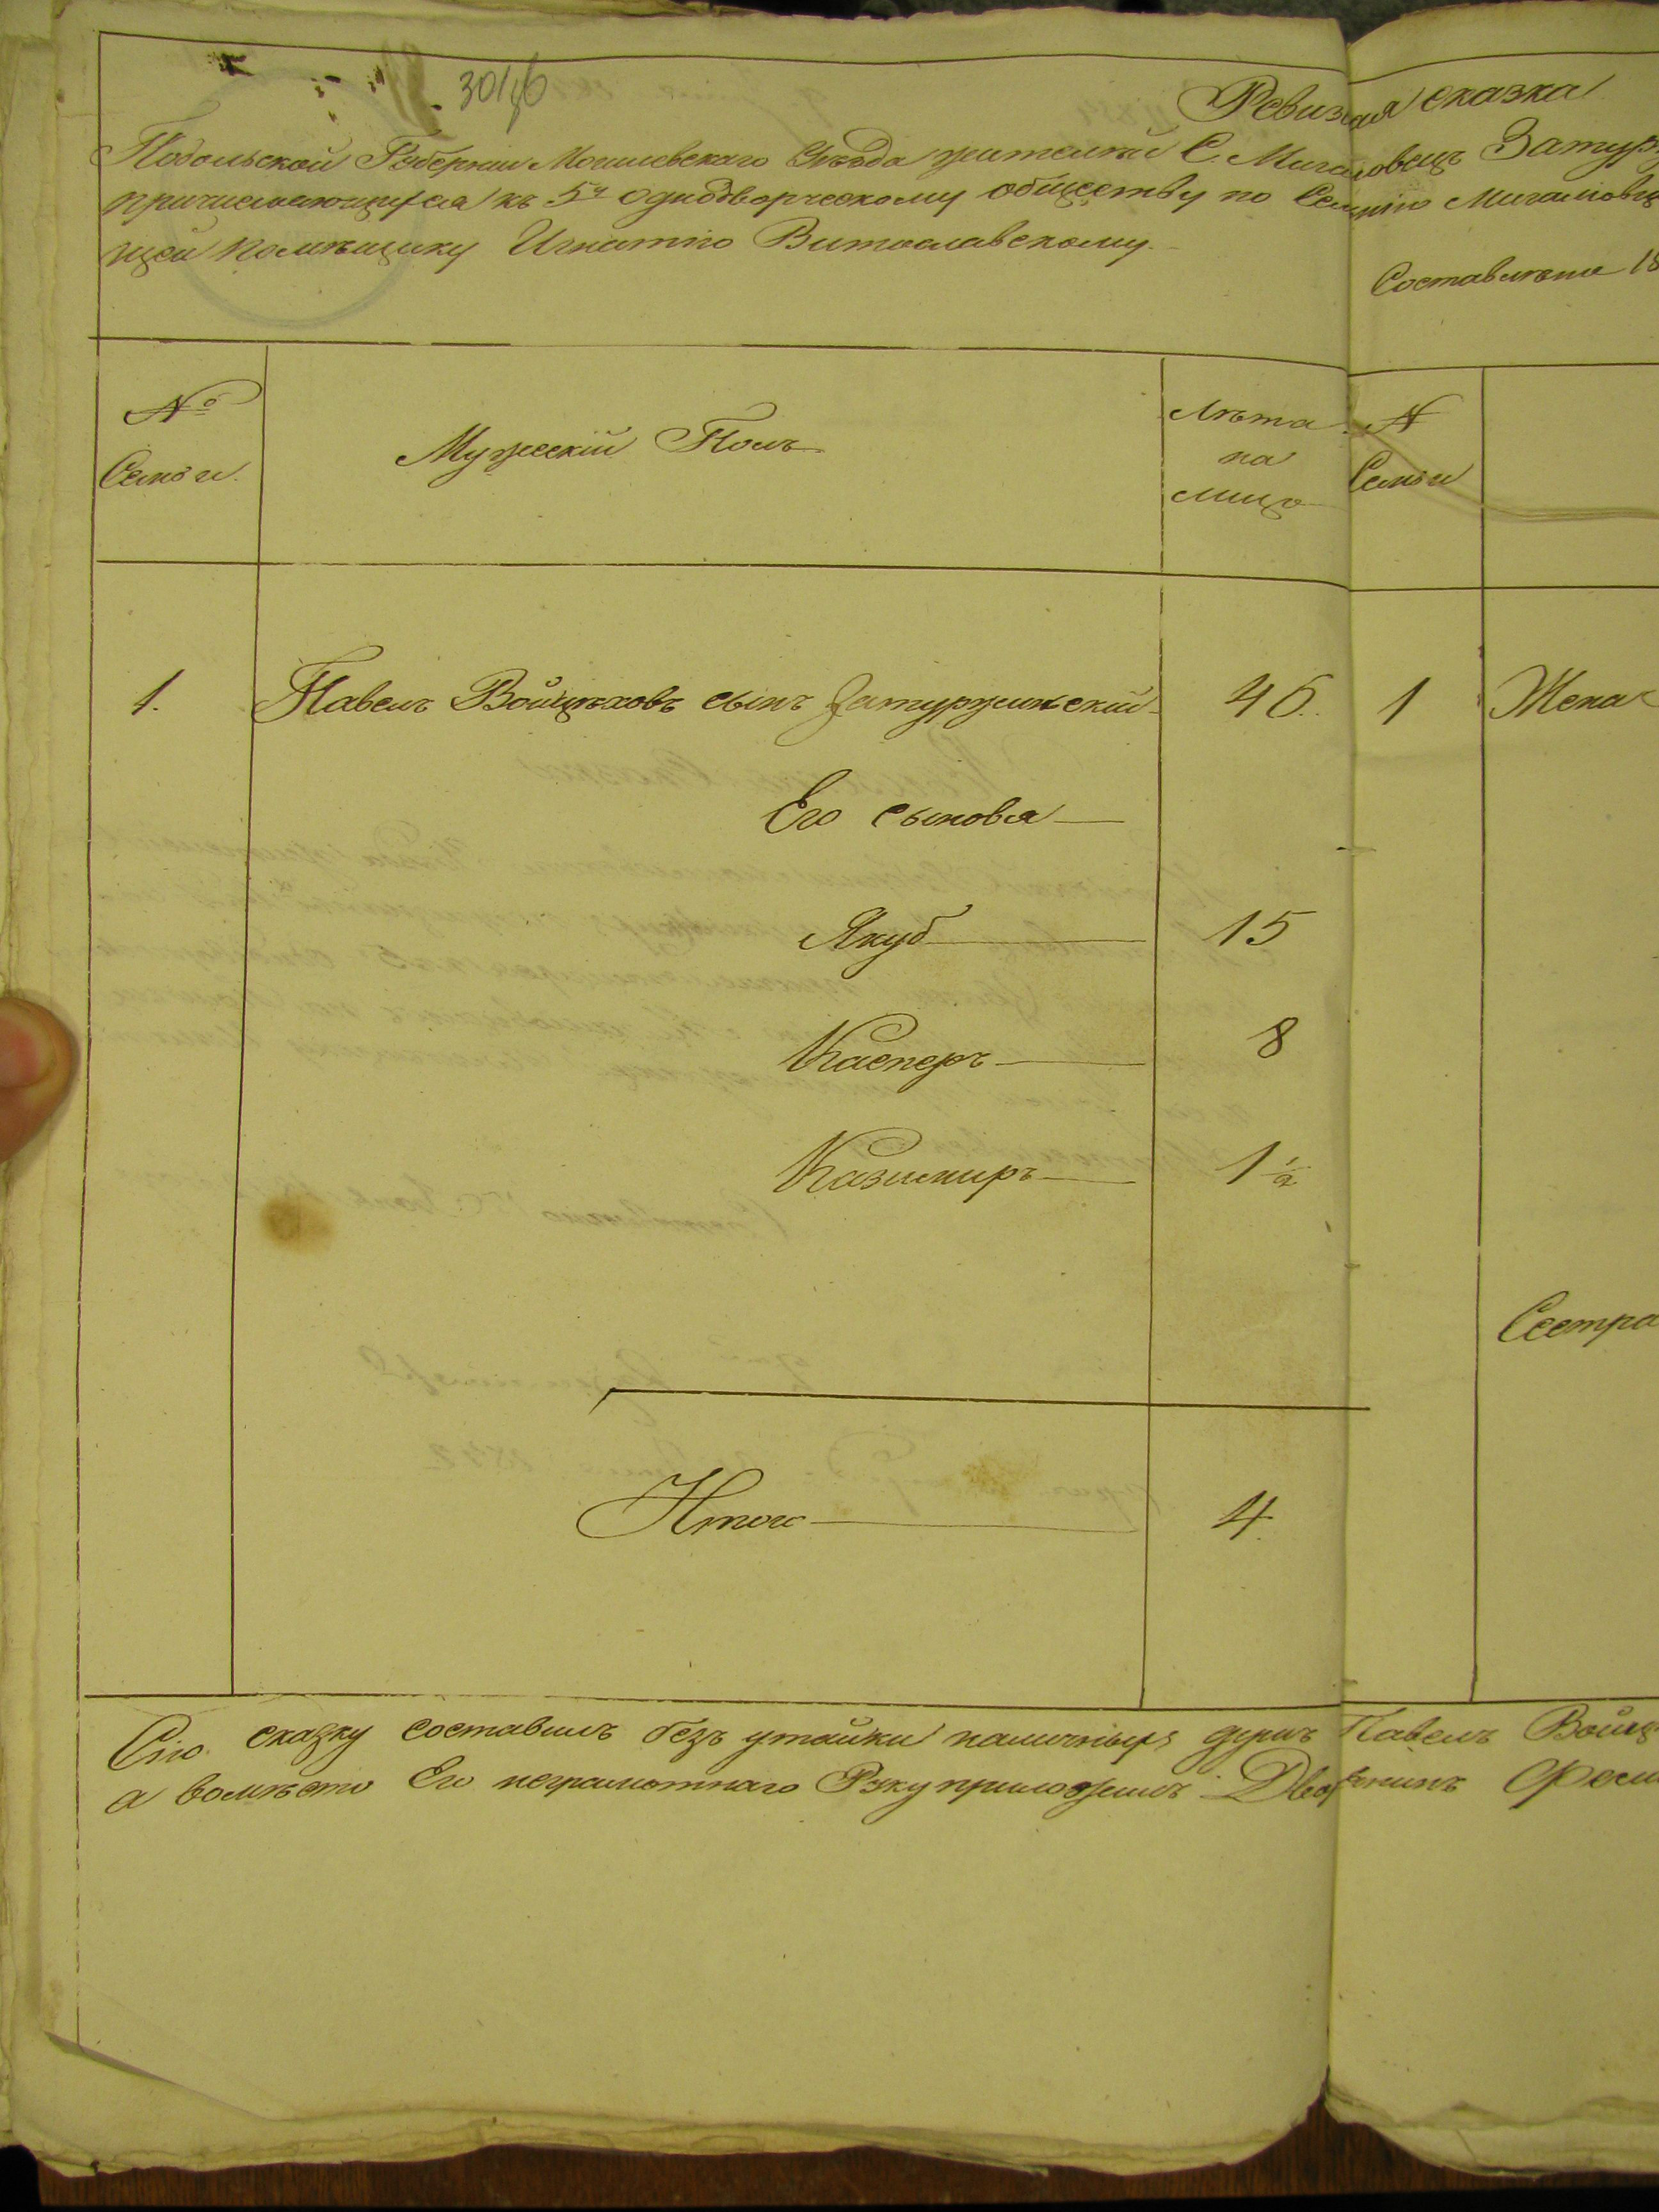 30 46
Ревизкая сказка
Подольской Губернии Могилевскаго Уѣзда жителей С. Мигаловецъ Затур
причисляющихся къ 5у однодворческому обществу по Селенію Мигаловец
щей помѣщику Игнатію Витославскому.
Составлена 18
№
Семьи.
Мужескій Полъ
Лѣта
на
лицо
№
Семьи
1.
Павелъ Войцѣховъ сынъ Затуржинскій
46.
1
Жена
Его сыновья
Якуб
15
Касперъ
8
Казимиръ
1 1/2
Сестра
Итого
4.
Сію сказку составилъ безъ утайки наличныхъ душъ Павелъ Войц
а вомѣсто Его неграмотнаго Руку приложилъ Дворенинъ